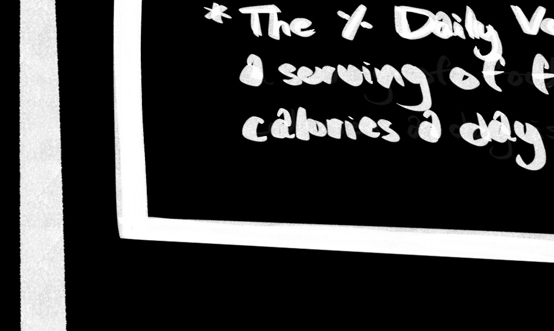 * The % Daily
a serving of
calories a day